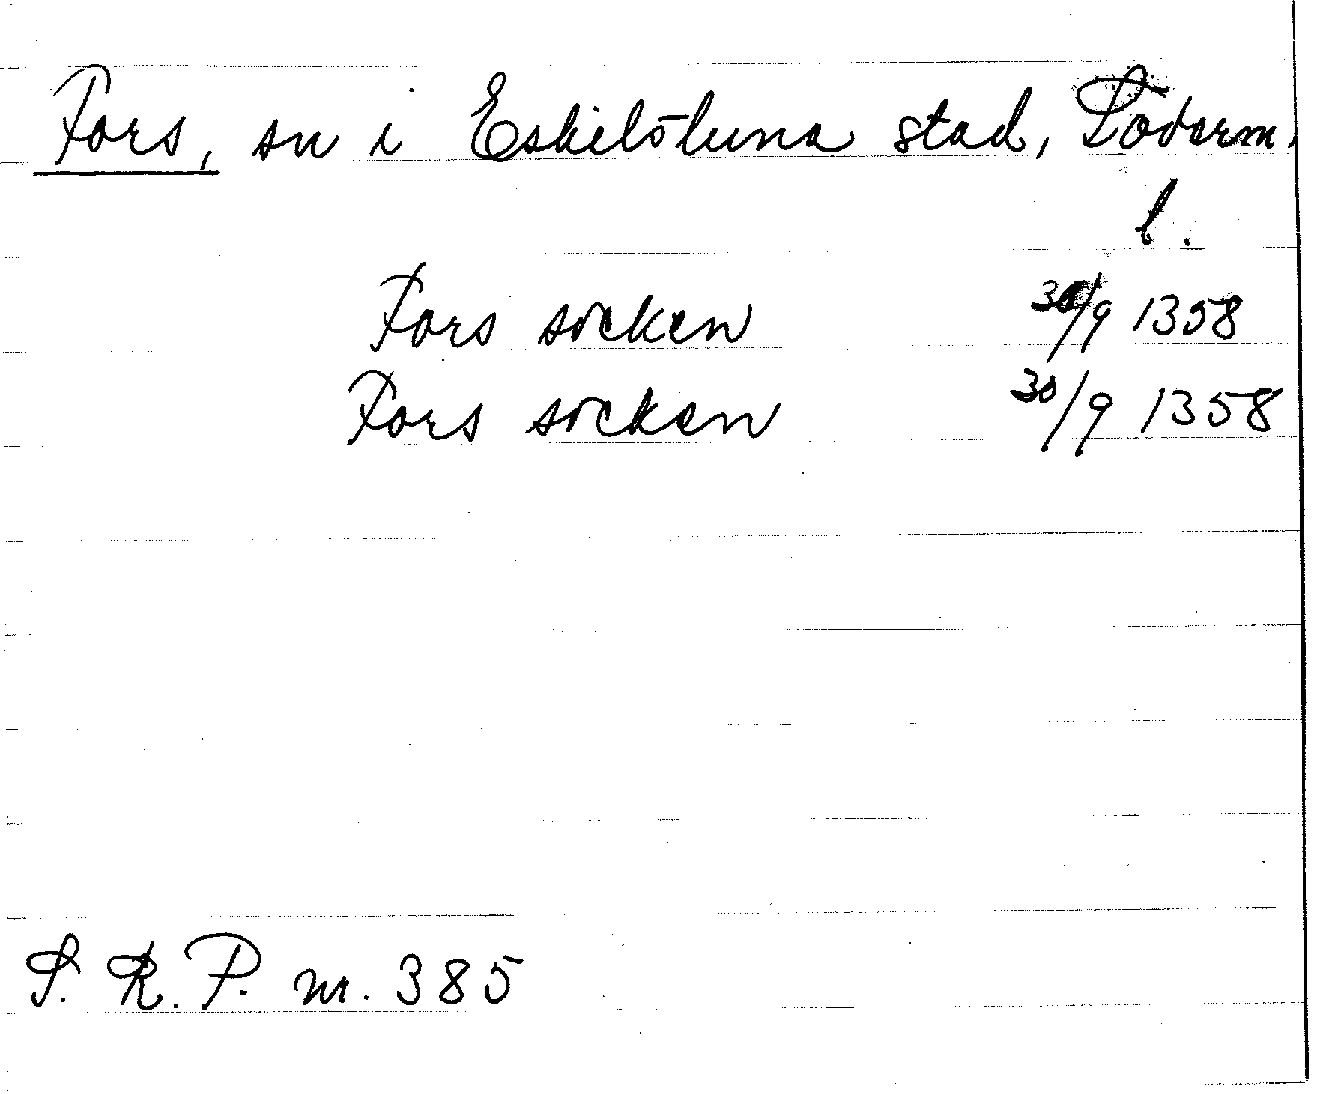 Fors, sn i Eskilstuna stad, Söderm.
l.
Fors socken 30/9 1358
Fors socken 30/9 1358
S. R. P. nr. 385